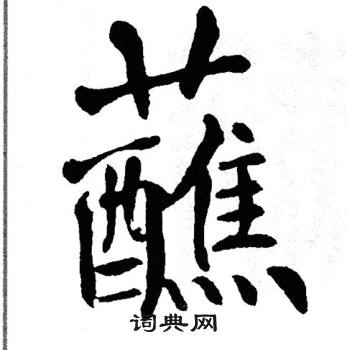 蘸
词典网